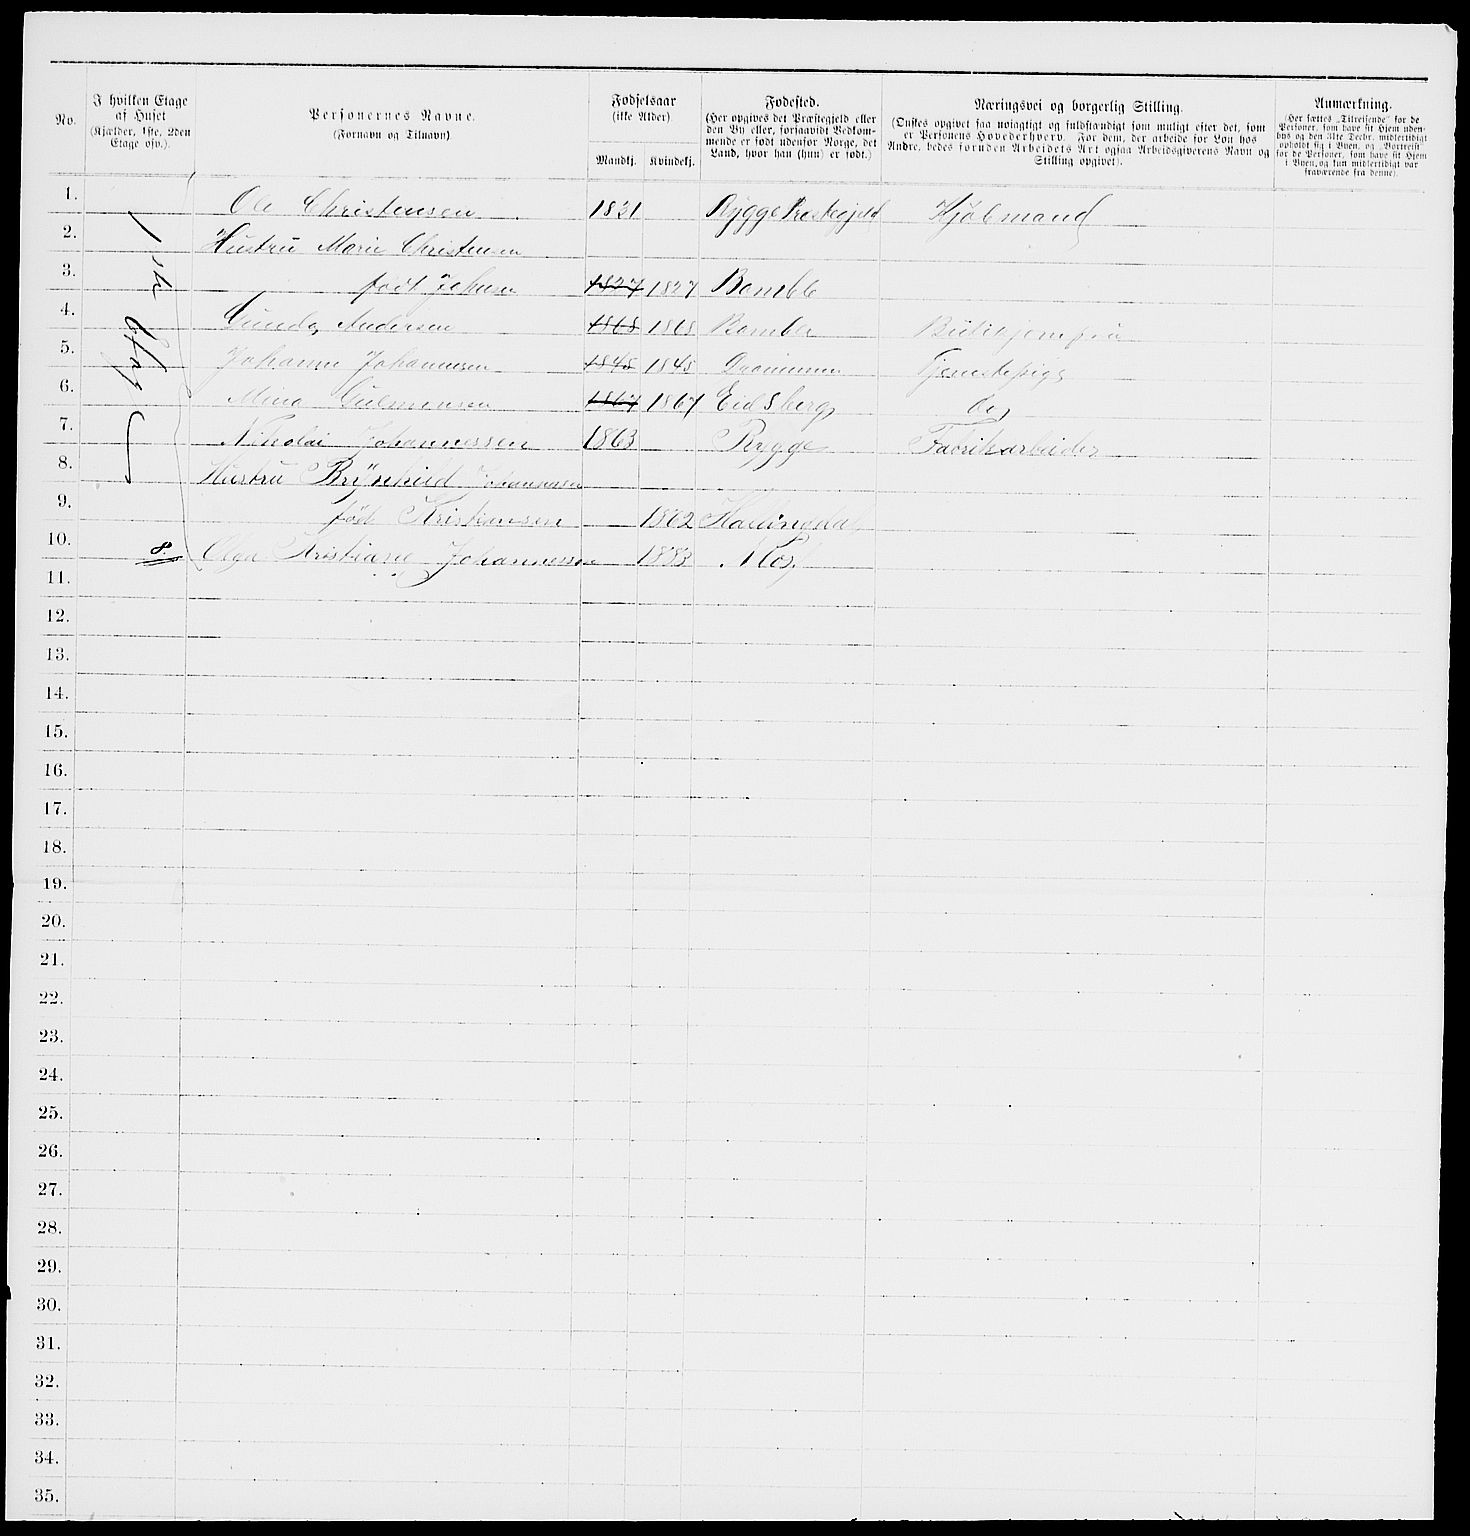 No.
I hvilken Etage
af Huset
(Kjælder, 1ste, 2den
Etage osv.).
Personernes Navne.
(Fornavn og Tilnavn)
Fødselsaar
(ikke Alder)
Mandkj.
Kvindekj.
Fødested.
(Her opgives det Præstegjeld eller
den By eller, forsaavidt Vedkom-
mende er født udenfor Norge, det
Land, hvor han (hun) er født.)
Næringsvei og borgerlig Stilling.
(Ønskes opgivet saa nøiagtigt og fuldstændigt som muligt efter det, som
er Personens Hovederhverv. For dem, der arbeide for Løn hos
Andre, bedes foruden Arbeidets Art ogsaa Arbeidsgiverens Navn og
Stilling opgivet).
Anmærkning.
(Her sættes „Tilreisende" for de
Personer, som have sit Hjem uden-
bys og den 31te Decbr. midlertidigt
opholdt sig i Byen, og „Bortreist"
for de Personer, som have sit Hjem
i Byen, og kun midlertidigt var
fraværende fra denne).
1. Ole Christensen 1831 Rygge Prestegjeld Kjøbmand
2. Hustru Marie Christensen
3. født Johnsen 1827 1827 Bamble
4. Gunda Andersen 1868 1868 Bamble Butikjomfru
5. Johanne Johannesen 1845 1845 Drammen Tjenestepige
6. Mina 1867 1867 Eidsberg do
7. Nikolai Johannessen 1863 Rygge Fabrikarbeider
8. Hustru Brÿnhild Johannesen
9. född Kristiansen 1862 Hallingdal
10. 8. Olga Kristiane Johannessen 1883 Moss
1 ste Etag
11.
12.
13.
14.
15.
16.
17.
18.
19.
20.
21.
22.
23.
24.
25.
26.
27.
28.
29.
30.
31.
32.
33.
34.
35.